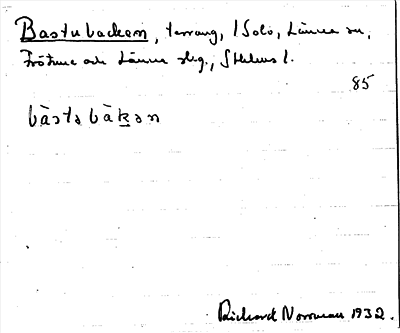 Bastubacken, terräng, i Solö, Länna sn,
Frötuna och Länna skg., Sthlms l.
85
bàstəbàkən
Richard Norrman 1932.